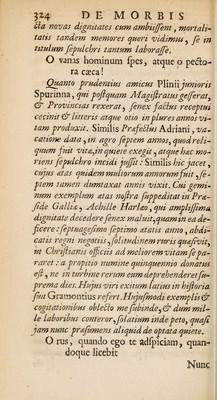 324 DE MORBIS
sta novas dignitates cum ambiissent, mortali-
tatis tandem memores queri vidimus, se in
titulum sepulchri tantum laborasse.
O vanas hominum spes, atque o pecto-
ra cæca!
Quanto prudentius amicus Plinii junioris
Spurinna, qui postquam Magistratus gesserat,
& Provincias rexerat, senex factus receptui
cecinit & litteris atque otio in plures annos vi-
tam produxit. Similis Præfectus Adriani, va-
catione data, in agro septem annos, quod reli-
quum fuit vitæ, itaque exegit, atque huc mo-
riens sepulchro incidi jussit: Similis hic jacet,
cujus ætas quidem multorum annorum fuit, se-
ptem tamen dumtaxat annis vixit. Cui gemi-
num exemplum ætas nostra suppeditat in Præ-
side Galliæ, Achille Harleo, qui amplissima
dignitate decedere senex maluit, quam in ea de-
ficere: septuagesimo septimo ætatis anno, abdi-
catis regni negotiis, solitudinem ruris quæsivit,
ut Christianis officiis ad meliorem vitam se pa-
raret: a propitio numine quinquennio donatus
est, ne in turbine rerum eum deprehenderet su-
prema dies. Hujus viri exitum latius in historia
sua Gramontius refert. Hujusmodi exemplis &
cogitationibus oblecto me subinde, & dum mil-
le laboribus conteror, solatium inde peto, quasi
jam nunc præsumens aliquid de optata quiete.
O rus, quando ego te adspiciam, quan-
doque licebit
Nunc